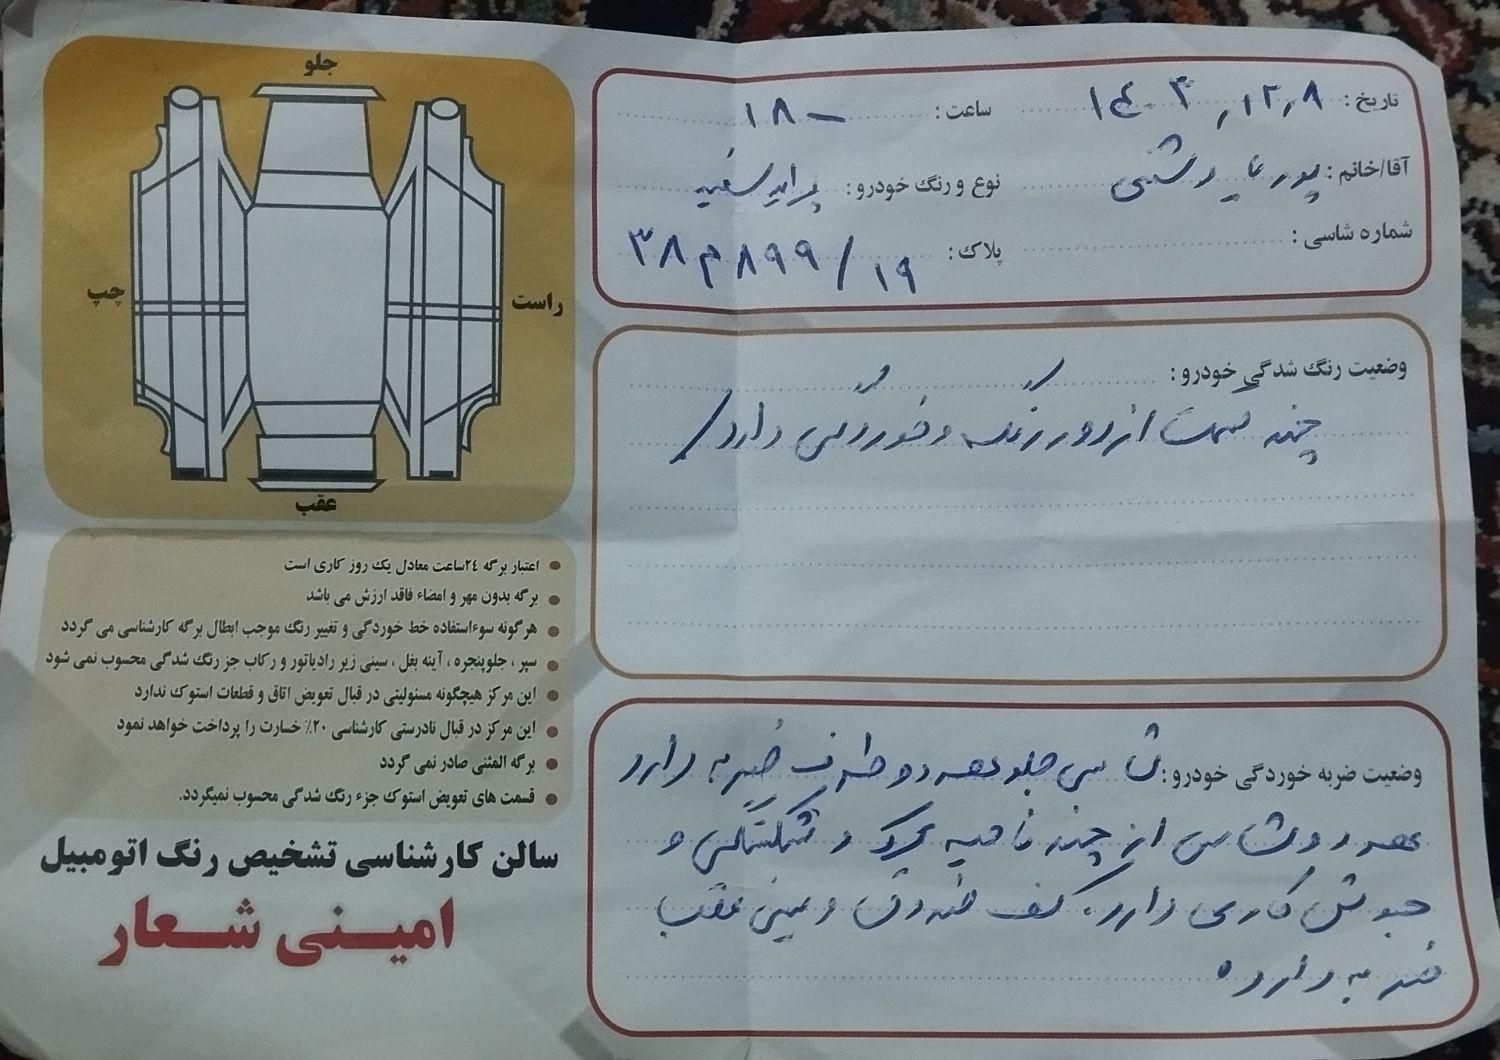 تاریخ: ۱۴۰۳/۱۲/۸
ساعت: ۱۸-
آقا/خانم:
نوع و رنگ خودرو: پراید سفید
شماره شاسی:
پلاک: ۳۸م۸۹۹/۱۹
وضعیت رنگ شدگی خودرو:
چند قسمت از دور رنگ و خوردگی دارد
وضعیت ضربه خوردگی خودرو: شاسی جلو هر دو طرف ضربه دارد
هر دو شاسی از چند ناحیه ترک و شکستگی و
جوش کاری دارد. کف صندوق و سینی عقب
ضربه دارد.
جلو
چپ
راست
عقب
اعتبار برگه ۲۴ساعت معادل یک روز کاری است
برگه بدون مهر و امضاء فاقد ارزش می باشد
هرگونه سوءاستفاده خط خوردگی و تغییر رنگ موجب ابطال برگه کارشناسی می گردد
سپر ، جلوپنجره ، آینه بغل ، سینی زیر رادیاتور و رکاب جز رنگ شدگی محسوب نمی شود
این مرکز هیچگونه مسئولیتی در قبال تعویض اتاق و قطعات استوک ندارد
این مرکز در قبال نادرستی کارشناسی ۲۰٪ خسارت را پرداخت خواهد نمود
برگه المثنی صادر نمی گردد
قسمت های تعویض استوک جزء رنگ شدگی محسوب نمیگردد.
سالن کارشناسی تشخیص رنگ اتومبیل
امینی شعار